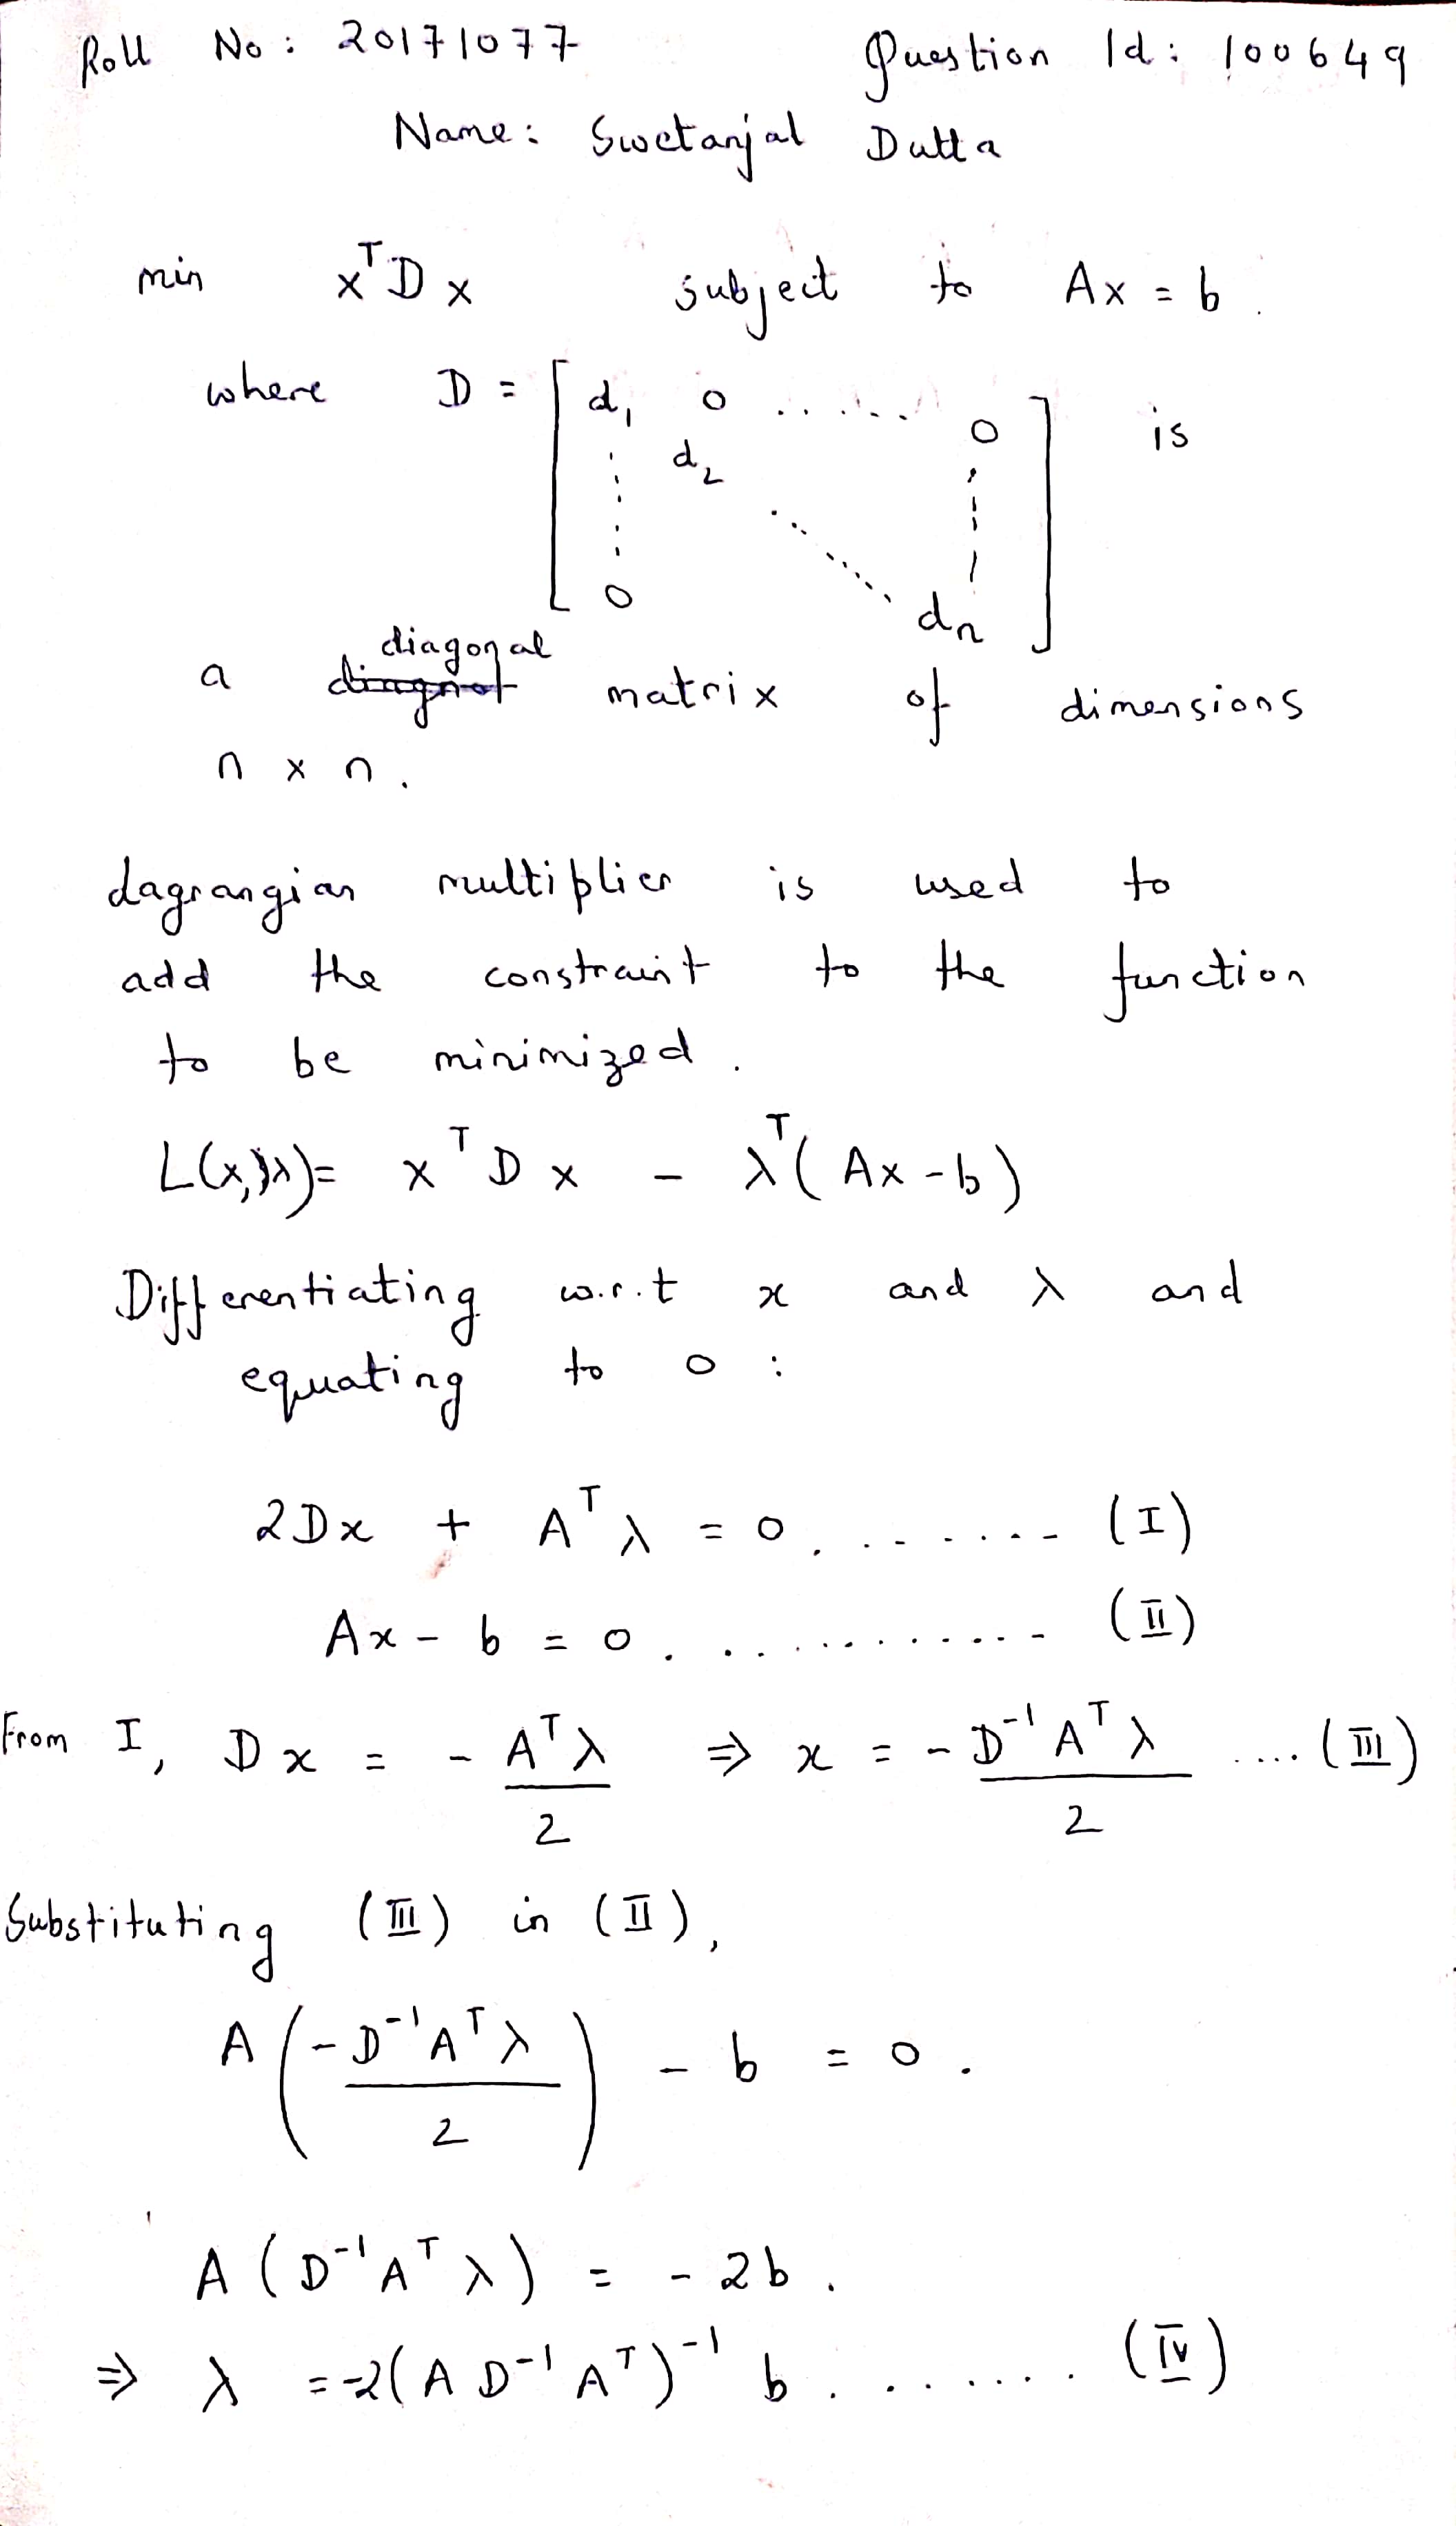 Roll No: 20171077 Question Id: 100649
Name: Swetanjal Dutta
min x^T D x subject to Ax = b.
where D = [ d₁ 0 ...... 0 is
d₂
0 dₙ ]
diagonal
a matrix of dimensions
n x n.
Lagrangian multiplier is used to
add the constraint to the function
to be minimized.
L(x, λ) = x^T D x - λ^T (Ax - b)
Differentiating w.r.t x and λ and
equating to 0 :
2Dx + A^T λ = 0. ........ (I)
Ax - b = 0. ............ (II)
From I, Dx = - A^T λ / 2 ⇒ x = - D^-1 A^T λ / 2 .... (III)
Substituting (III) in (II),
A ( - D^-1 A^T λ / 2 ) - b = 0.
A ( D^-1 A^T λ ) = - 2b.
⇒ λ = -2 ( A D^-1 A^T )^-1 b. ....... (IV)